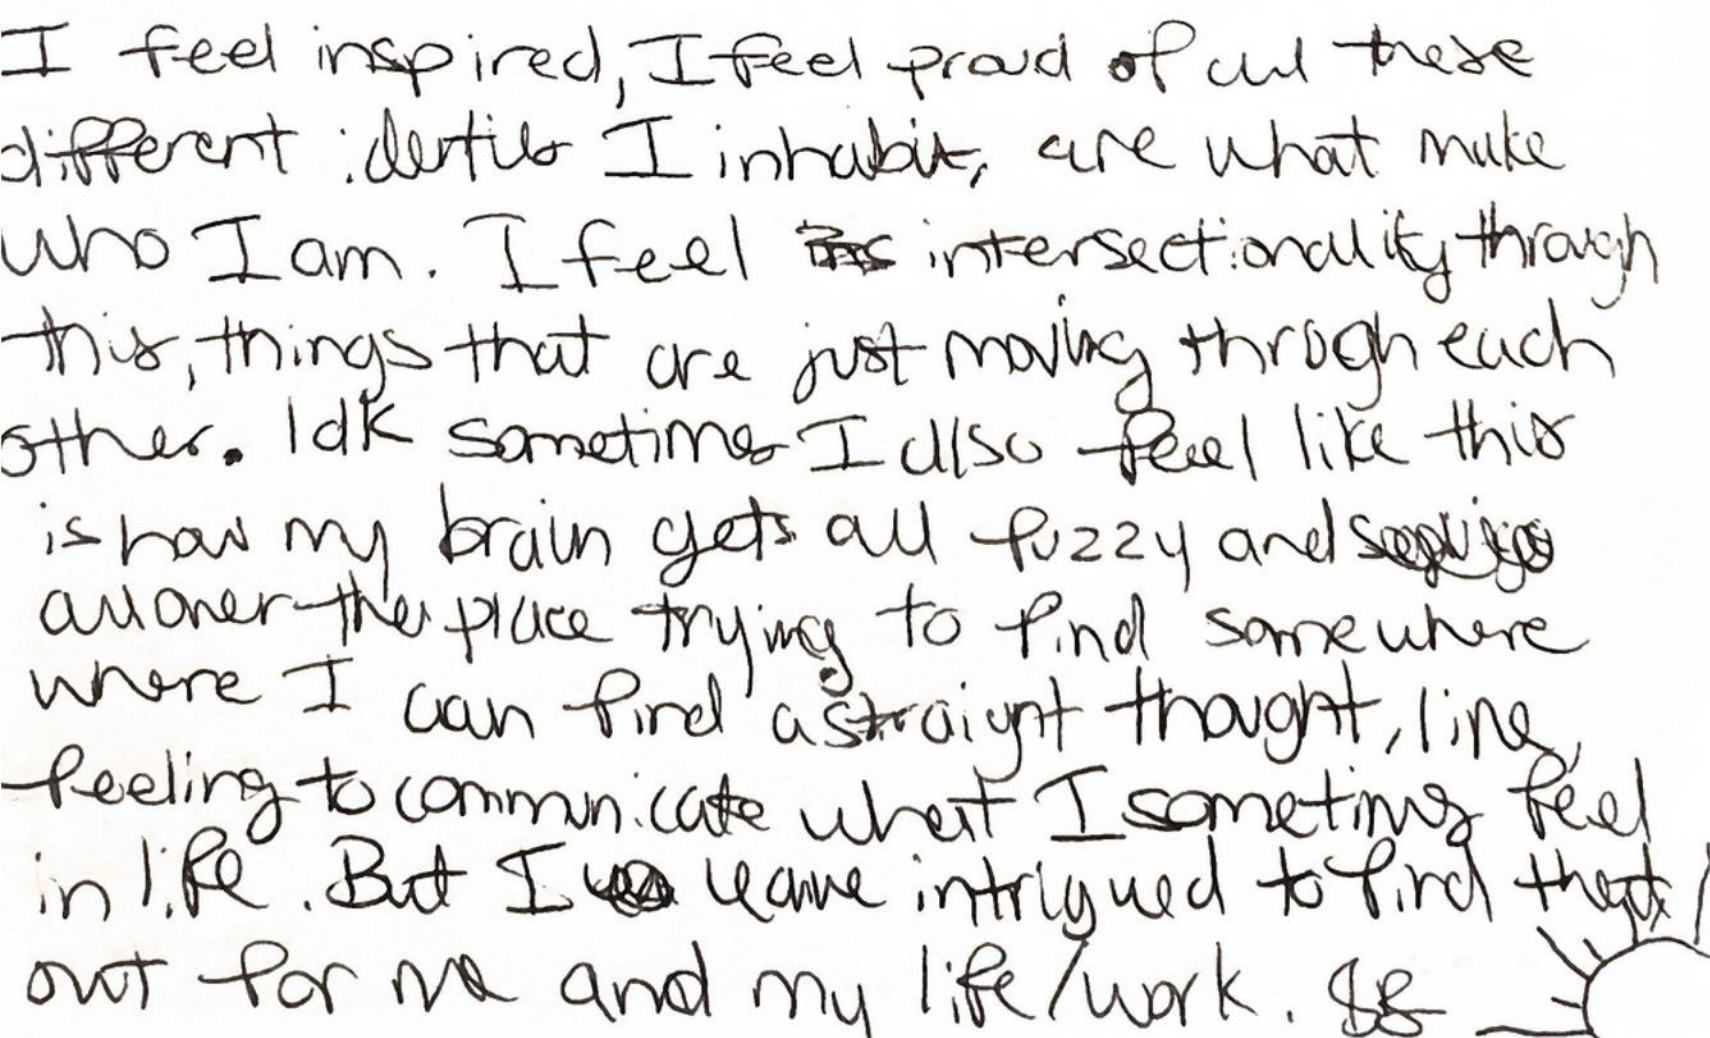 I feel inspired, I feel proud of all these
different identities I inhabit, are what make
who I am. I feel intersectionality through
this, things that are just moving throgh each
other. Idk sometimes I also feel like this
is how my brain gets all fuzzy and
all over the place trying to find somewhere
where I can find a straight thought, line,
feeling to communicate what I sometimes feel
in life. But I leave intrigued to find that
out for me and my life/work.